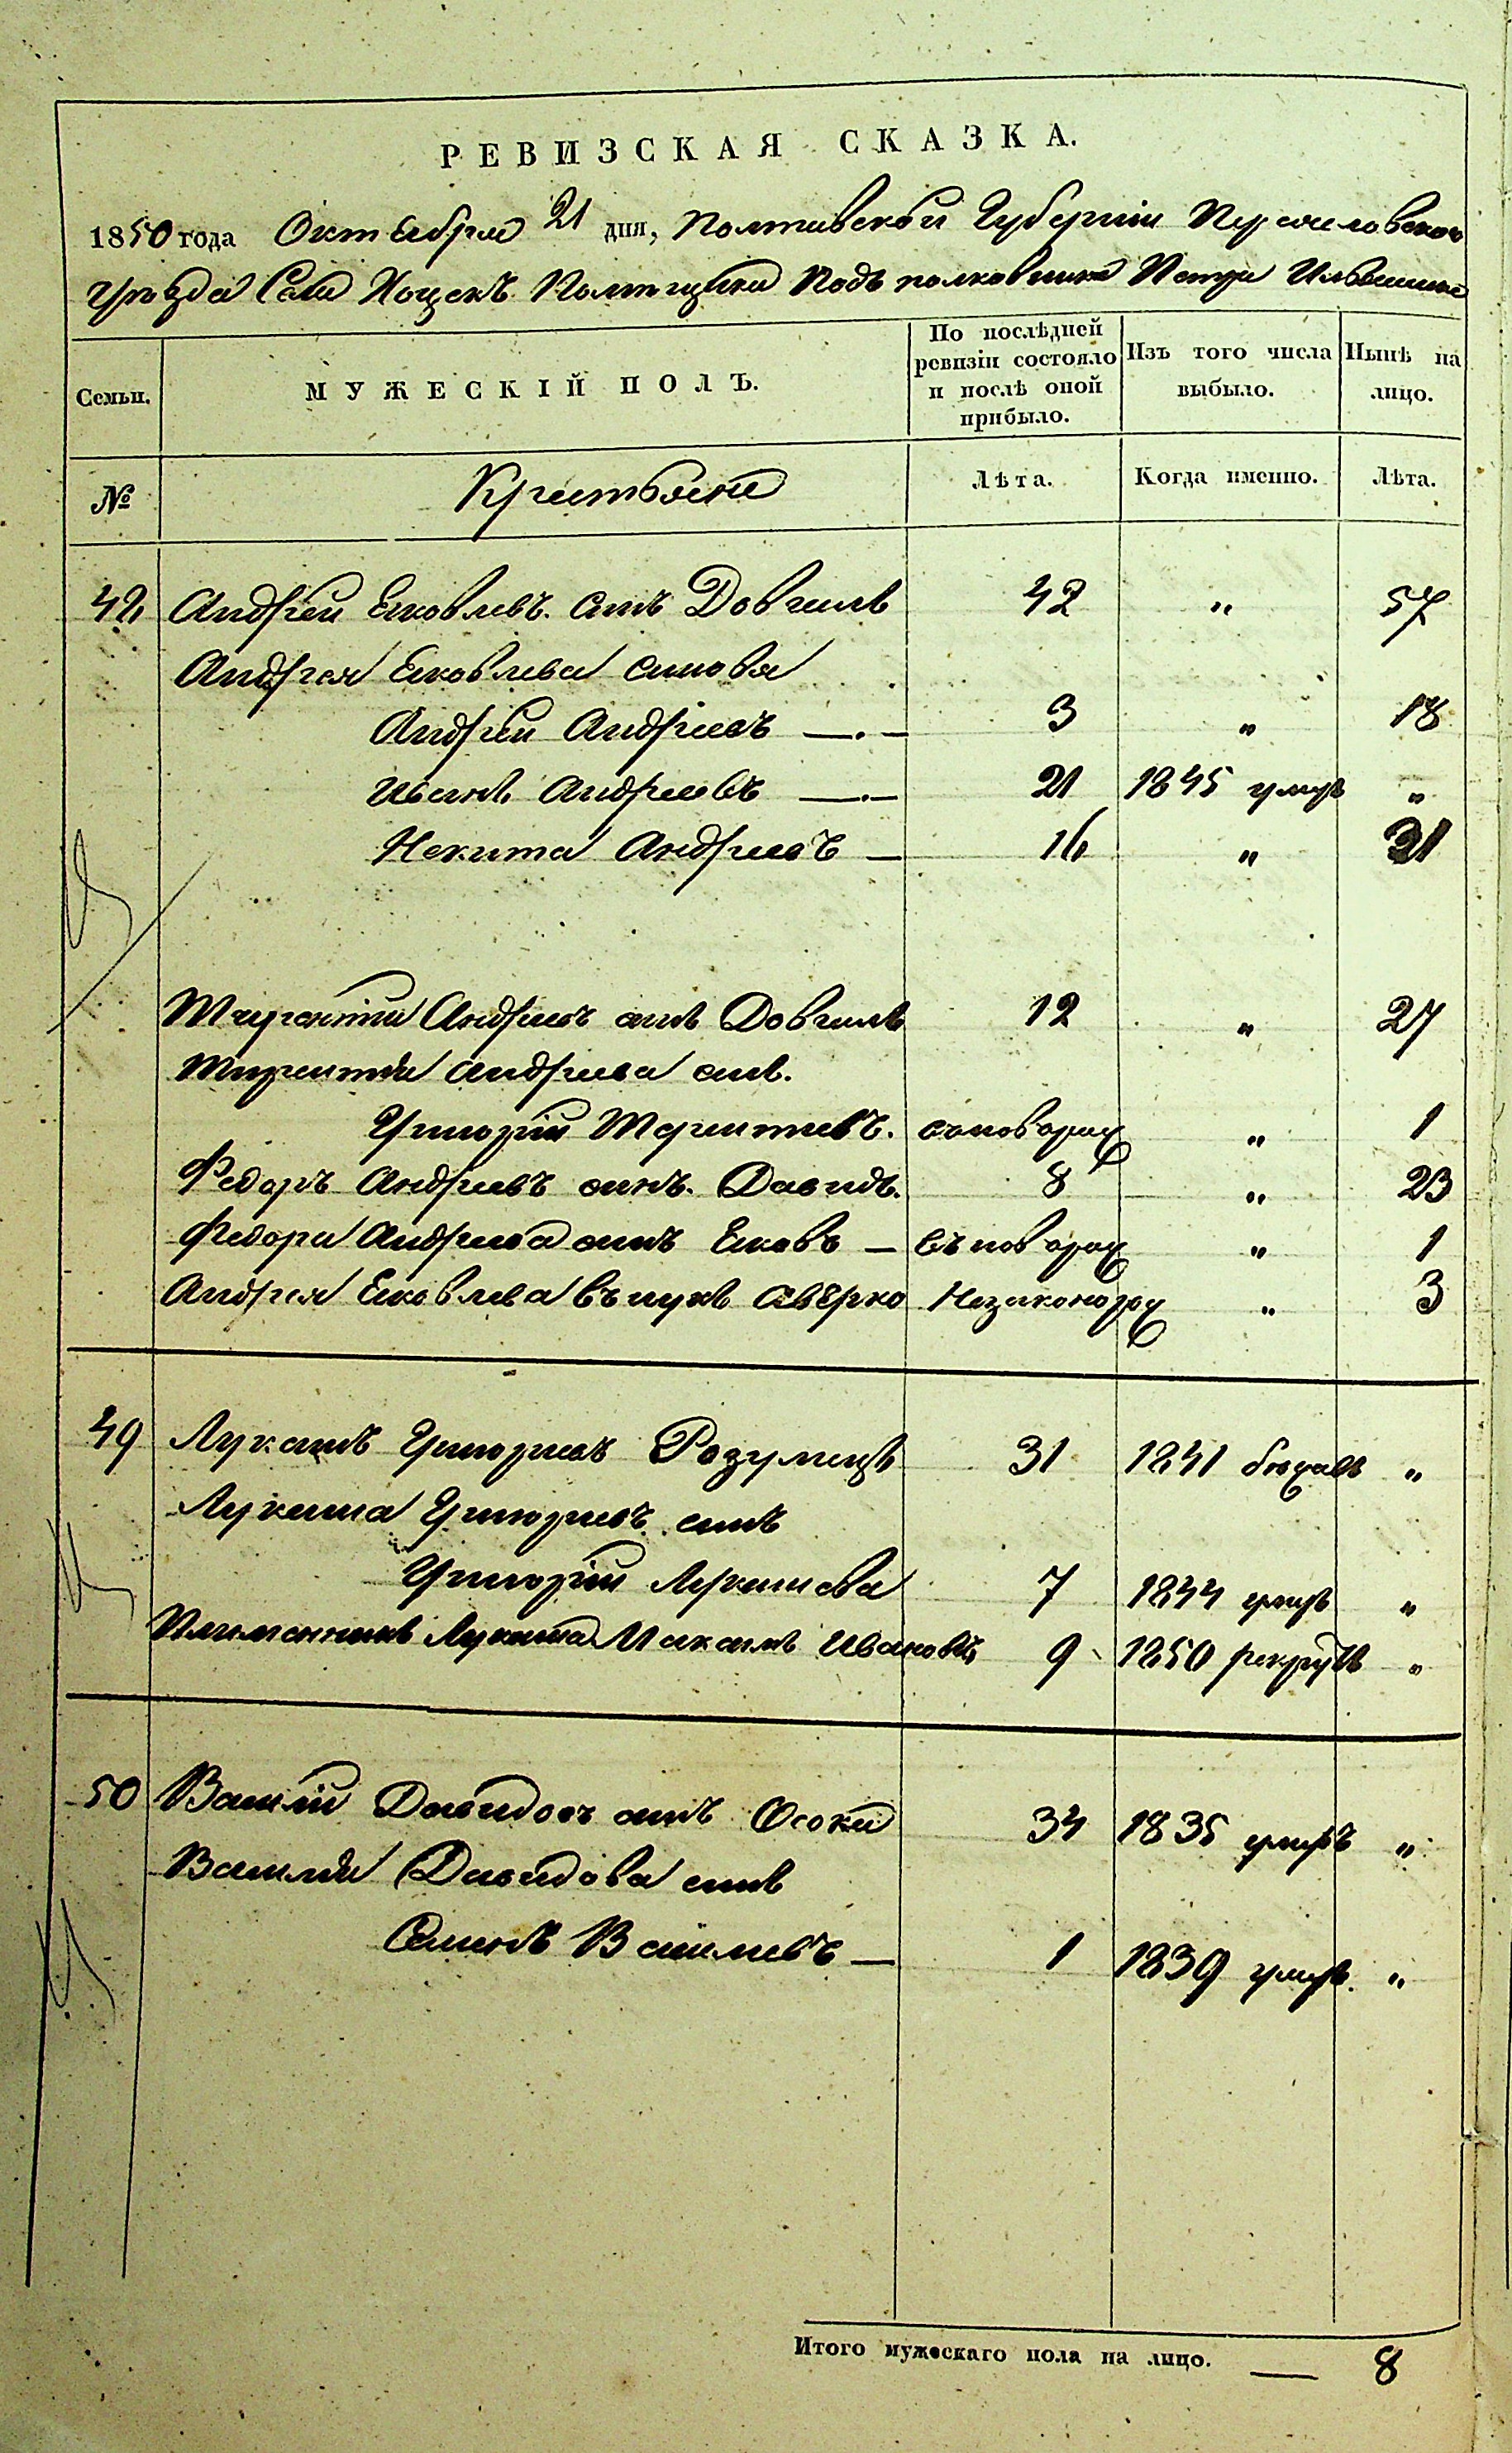 РЕВИЗСКАЯ СКАЗКА.
1850 года Октября 21 дня, Полтавской Губернии Переяславского
уезда Села Хоцекъ Помещика Подполковника Петра
Семьи. МУЖЕСКІЙ ПОЛЪ. По послѣдней ревизіи состояло и послѣ оной прибыло. Изъ того числа выбыло. Нынѣ на лицо.
№ Крестьяне Лѣта. Когда именно. Лѣта.
Андрей Яковлевъ сынъ 42 „ 57
Андрея Яковлева сыновья
Андрей Андреевъ —.— 3 „ 18
Иванъ Андреевъ —.— 21 1845 умеръ „
Некита Андреевъ — 16 „ 31
Терентий Андреевъ сынъ 12 „ 27
Терентия Андреева сынъ.
Григорій Терентиевъ. вновь рож „ 1
Федоръ Андреевъ сынъ. Давидъ. 8 „ 23
Федора Андреева сынъ Яковъ — вновь рож „ 1
Андрея Яковлева внукъ Аверко Незаконорож „ 3
49 Лукашъ Григориевъ 31 1841 „
Лукаша Григориевъ сынъ
Григорій Лукашева 7 1844 умеръ „
Племянникъ Лукаша Максимъ Ивановъ 9 1850 рекрутъ „
50 Василій Давидовъ сынъ Осока 34 1835 умеръ „
Василия Давидова сынъ
Семенъ Василиевъ — 1 1839 умеръ. „
Итого мужескаго пола на лицо. — 8